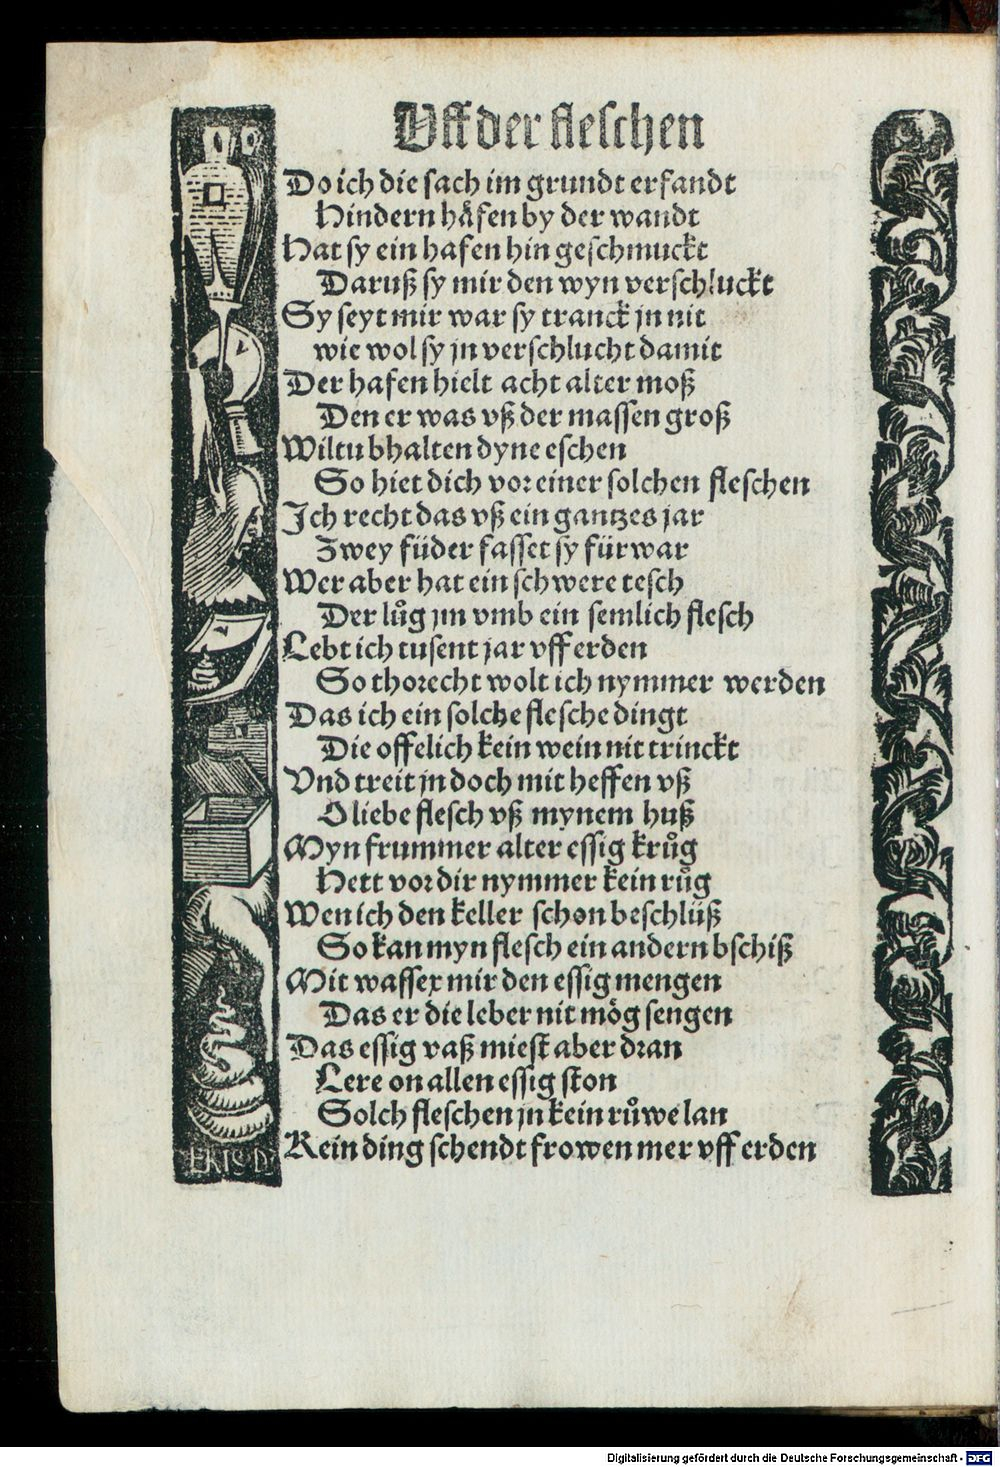 Vff der fleschen
Do ich die sach im grundt erfandt
Hindern håfen by der wandt
Hat sy ein hafen hin geschmuckt
Daruß sy mir den wyn verschluckt
Sy seyt mir war sy tranck jn nit
wie wol sy jn verschlucht damit
Der hafen hielt acht alter moß
Den er was vß der massen groß
Wiltu bhalten dyne eschen
So hiet dich vor einer solchen fleschen
Ich recht das vß ein gantzes jar
Zwey füder fasset sy fürwar
Wer aber hat ein schwere tesch
Der lůg jm vmb ein semlich flesch
Lebt ich tusent jar vff erden
So thorecht wolt ich nymmer werden
Das ich ein solche flesche dingt
Die offelich kein wein nit trinckt
Vnd treit jn doch mit heffen vß
O liebe flesch vß mynem huß
Myn frummer alter essig krůg
Hett vor dir nymmer kein růg
Wen ich den keller schon beschlüß
So kan myn flesch ein andern bschiß
Mit wasser mir den essig mengen
Das er die leber nit mög sengen
Das essig vaß miest aber dran
Lere on allen essig ston
Solch fleschen jn kein růwe lan
Kein ding schendt frowen mer vff erden
Digitalisierung gefördert durch die Deutsche Forschungsgemeinschaft - DFG